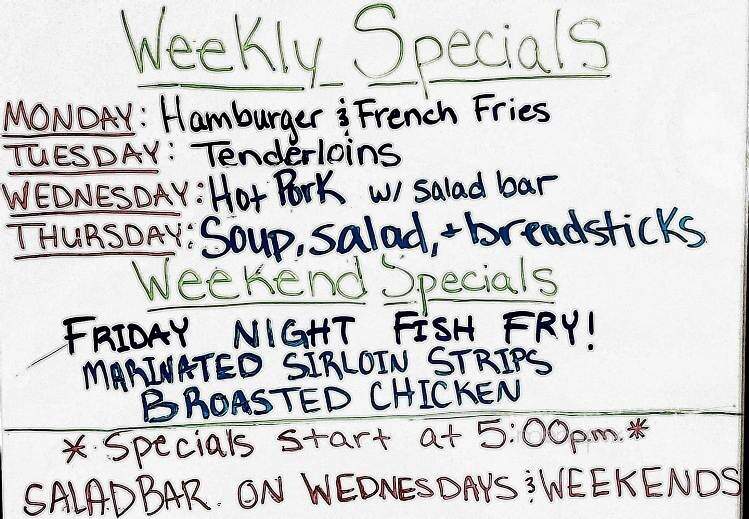 Weekly Specials
MONDAY: Hamburger & French Fries
TUESDAY: Tenderloins
WEDNESDAY: Hot Pork w/ salad bar
THURSDAY: Soup, salad, + breadsticks
Weekend Specials
FRIDAY NIGHT FISH FRY!
MARINATED SIRLOIN STRIPS
BROASTED CHICKEN
* Specials start at 5:00p.m. *
SALAD BAR ON WEDNESDAYS & WEEKENDS